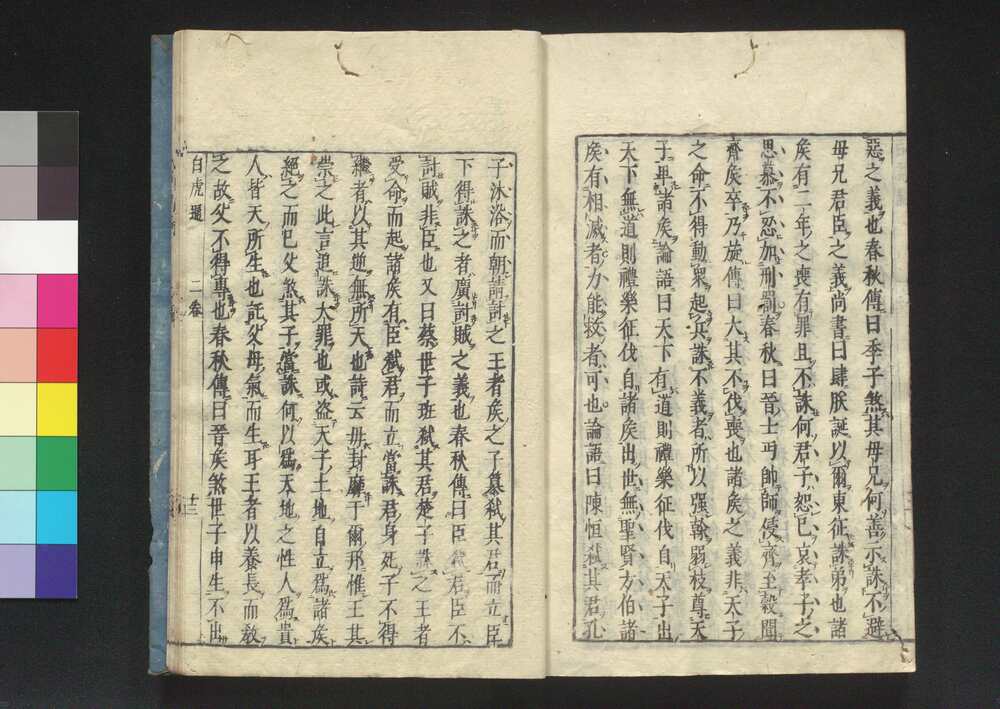 惡之義也春秋傳曰季子煞其母兄何善示誅不避
母兄君臣之義尚書曰肆朕誕以爾東征誅弟也諸
矦有三年之喪有罪且不誅何君子恕巳哀孝子之
思慕不忍加刑罰春秋曰晉士丐帥師侵齊至穀聞
齊矦卒乃旋傳曰大其不伐喪也諸矦之義非天子
之命不得動衆起兵誅不義者所以强幹弱枝尊天
子卑諸矦論語曰天下有道則禮樂征伐自天子出
天下無道則禮樂征伐自諸矦出世無聖賢方伯諸
矦有相滅者力能救者可也論語曰陳恒弑其君孔
子沐浴而朝請討之王者矦之子簒弑其君而立臣
下得誅之者廣討賊之義也春秋傳曰臣弑君臣不
討賊非臣也又曰蔡世子班弑其君楚子誅之王者
受命而起諸矦有臣弑君而立當誅君身死子不得
繼者以其逆無所天也詩云毋封靡于爾邦惟王其
崇之此言追誅大罪也或盗天子土地自立爲諸矦
絕之而巳父煞其子當誅何以爲天地之性人爲貴
人皆天所生也託父母氣而生耳王者以養長而敎
之故父不得專也春秋傳曰晉矦煞世子申生不出
白虎通 二卷 十三